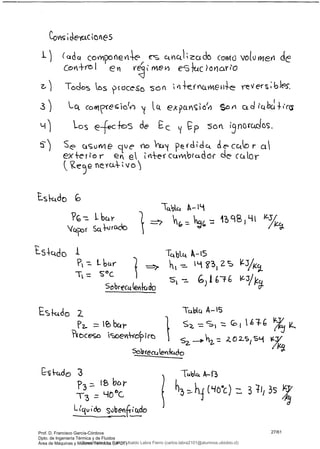 Consideraciones
1) Cada componente es analizado como volumen de
control en régimen estacionario
2) Todos los proceso son internamente reversibles.
3) La compresión y la expansión son adiabáticas
4) Los efectos de Ec y Ep son ignorados.
5) Se asume que no hay perdida de calor al
exterior en el intercambiador de calor
(Regenerativo)
Estado 6
Tabla A-14
P6 = 1 bar
Vapor Saturado
⇒ h6 = hg6 = 1398,41 KJ/Kg
Estado 1
Tabla A-15
P1 = 1 bar
T1 = 5°C
Sobrecalentado
⇒ h1 = 1483,25 KJ/Kg
S1 = 6,1676 KJ/Kg
Estado 2
Tabla A-15
P2 = 18 bar
Proceso isoentrópico
Sobrecalentado
S2 = S1 = 6,1676 KJ/Kg K
S2 → h2 = 2025,54 KJ/Kg
Estado 3
Tabla A-13
P3 = 18 bar
T3 = 40°C
Liquido subenfriado
h3 = hf (40°C) = 371,35 KJ/Kg
Prof. D. Francisco García-Córdova
Dpto. de Ingeniería Térmica y de Fluidos
Área de Máquinas y Motores Térmicos (UPCT)
27/61